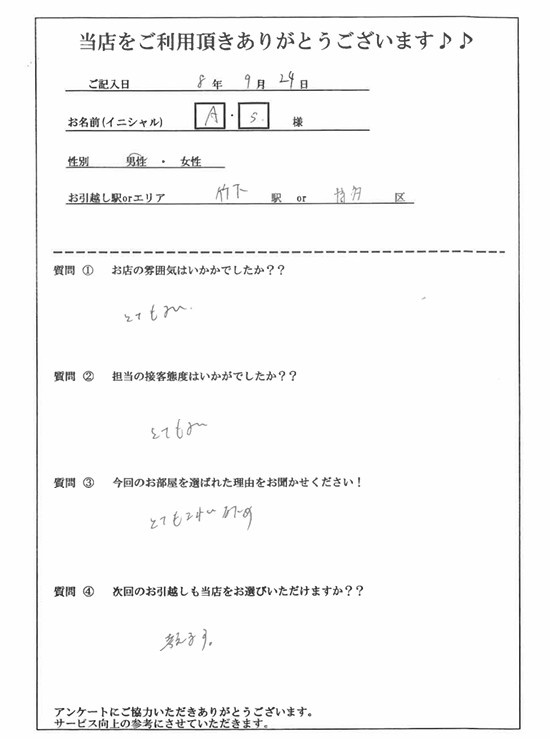 当店をご利用頂きありがとうございます♪♪
ご記入日 8 年 9 月 24 日
お名前(イニシャル) A ・ S. 様
性別 男性 ・ 女性
お引越し駅orエリア 竹下 駅 or 博多 区
質問 ① お店の雰囲気はいかかでしたか??
とてもよい.
質問 ② 担当の接客態度はいかがでしたか??
とてもよい
質問 ③ 今回のお部屋を選ばれた理由をお聞かせください!
とても
質問 ④ 次回のお引越しも当店をお選びいただけますか??
考えます。
アンケートにご協力いただきありがとうございます。
サービス向上の参考にさせていただきます。